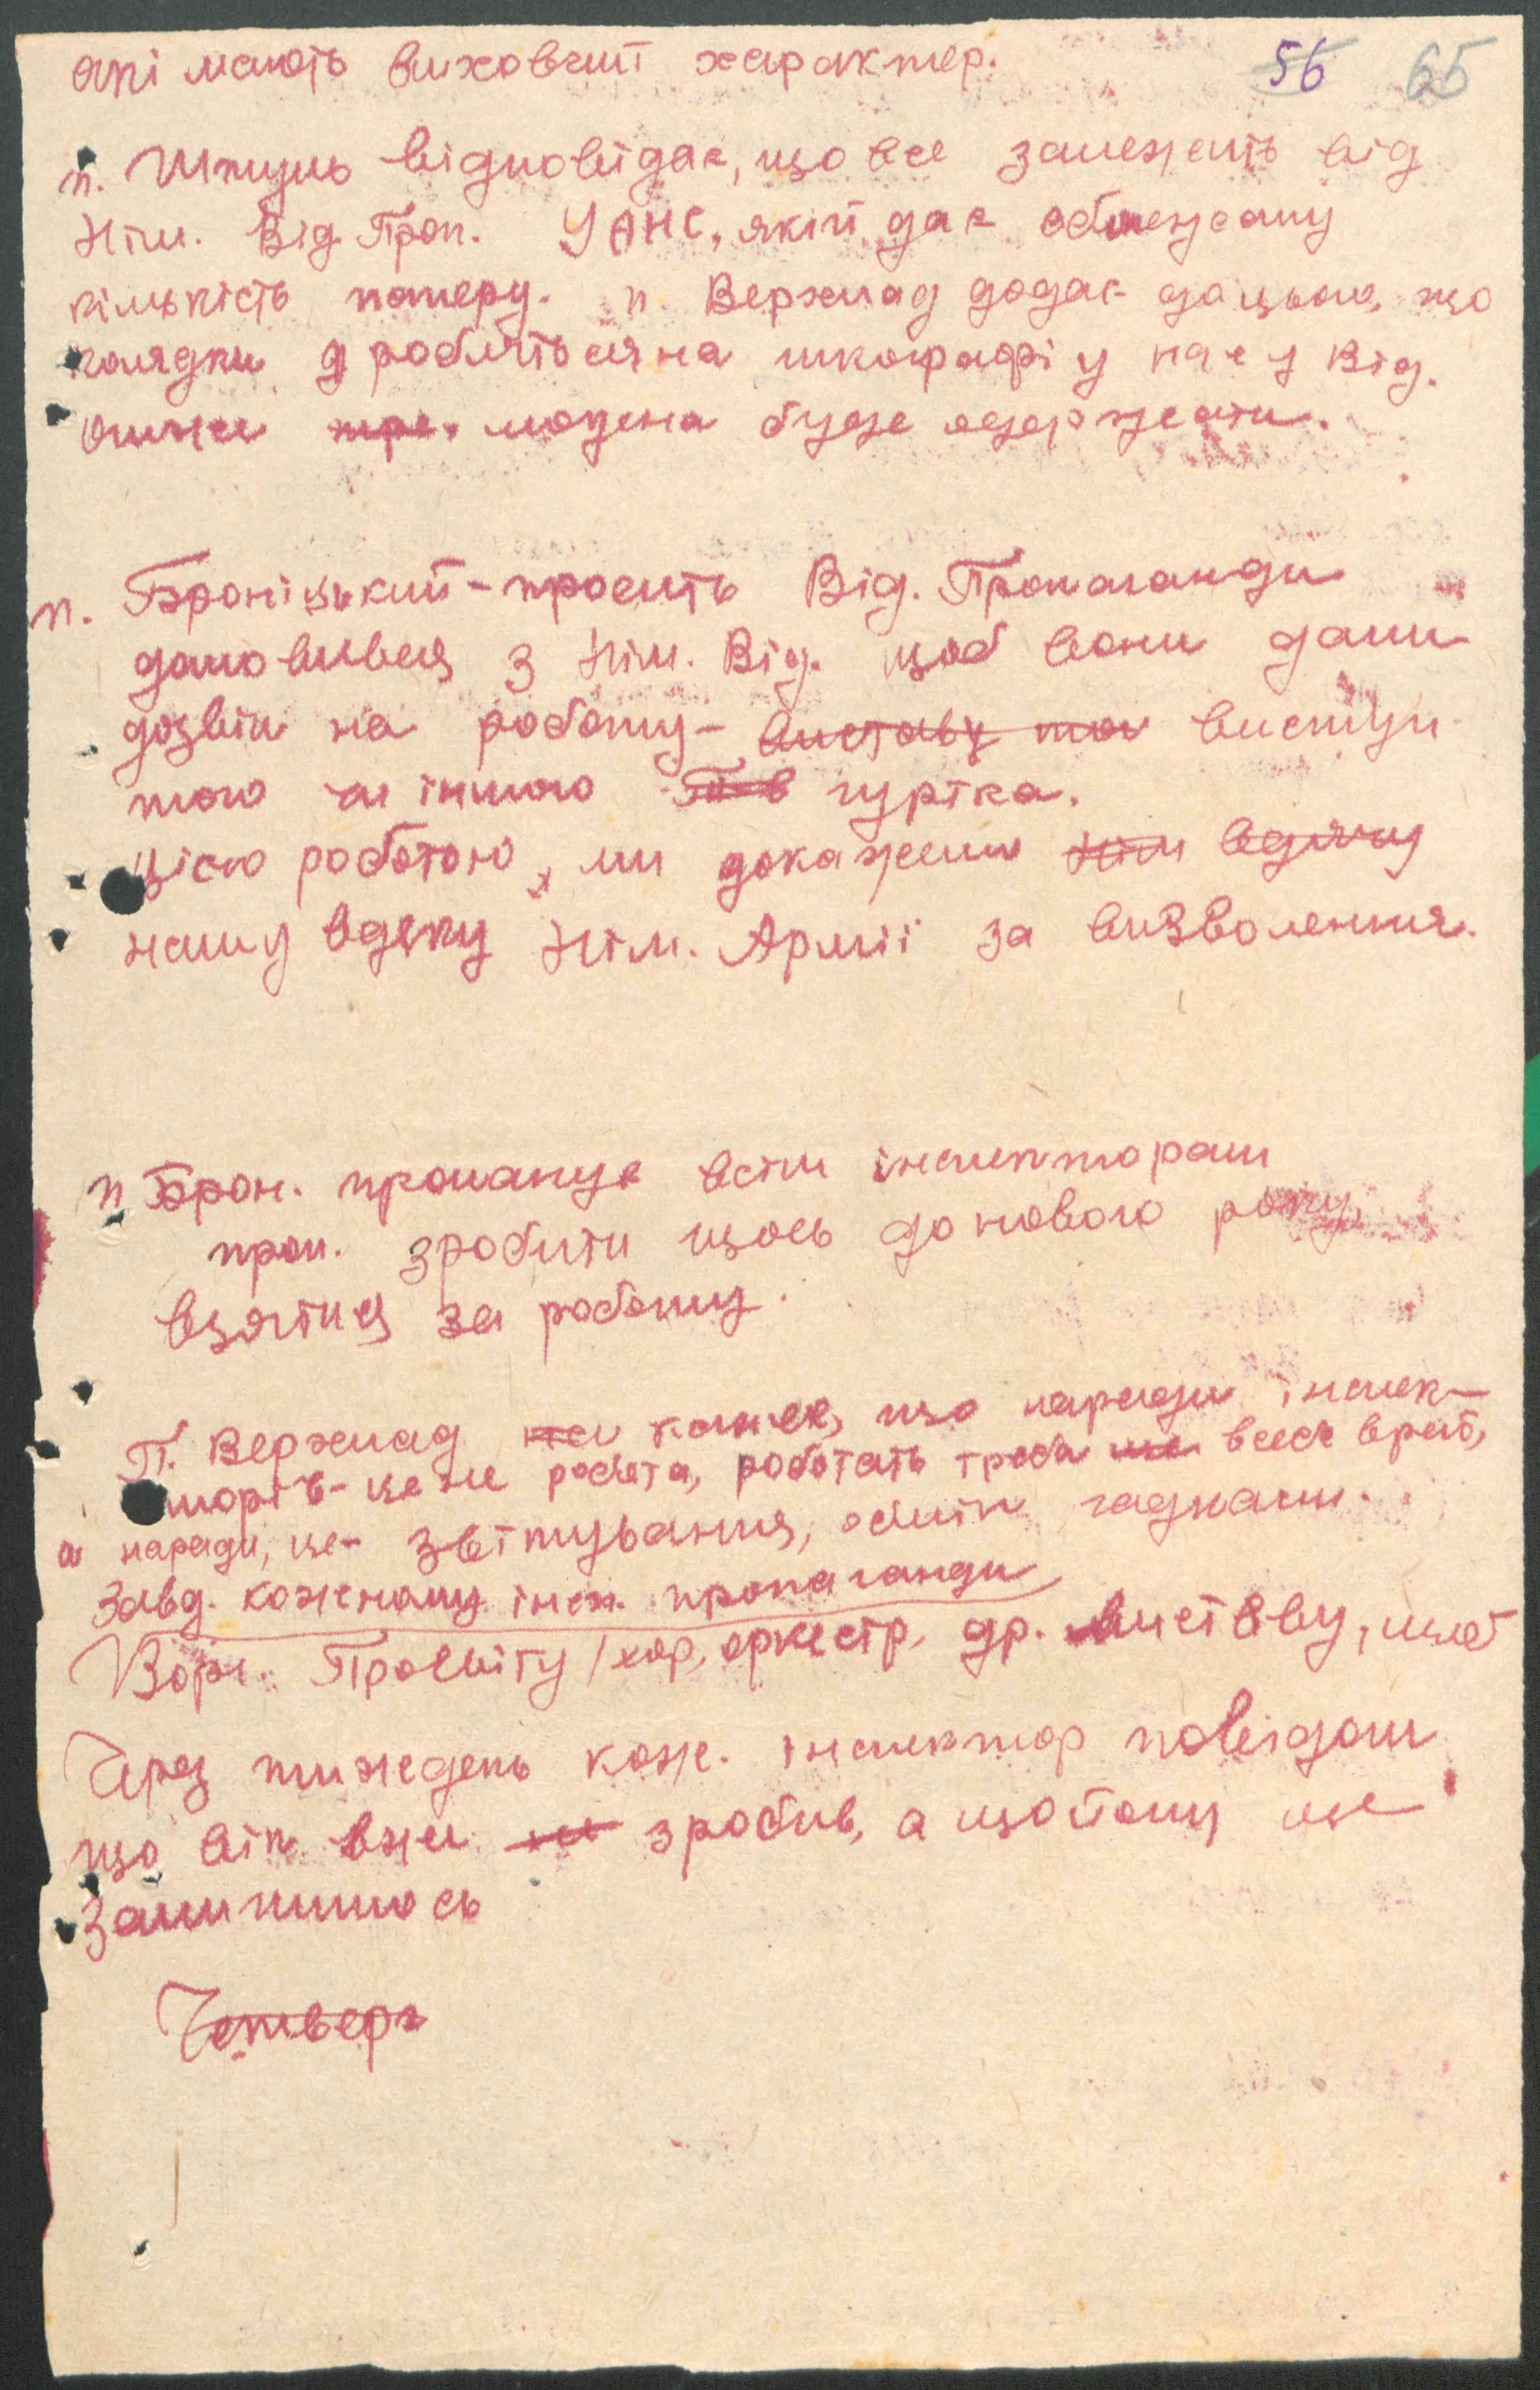 які мають виховчий характер. 56 65
п. Шпуль відповідає, що все залежить від
Нім. Від. Проп. УАНС, якій дає обмежану
кількість паперу. п Верхлад додає до цього, що
колядки робляться на шкофафі у нас у Від.
отже тре. можна буде одержати.
п. Броніцький - просить Від. Пропаганди
домовився з Нім. Від. щоб вони дали
дозвіл на роботу - виставу то виступ
того чи іншого Тов гуртка.
цією роботою, ми докажемо Нім вдячну
нашу вдяку Нім. Армії за визволення.
п Брон. пропанує всім інспекторам
проп. зробити щось до нового року,
взятися за роботу.
П. Верхлад каже, що наради інспек-
торів - це не робота, роботать треба ще весь врем,
а наради, це - звітування, обмін гадками.
Завд. кожному інсп. пропаганди
Ворг. Просвіту /хор, оркестр, др. виставу, щоб
Через тиждень кож. інспектор повідом
що він вже не зробив, а що йому ще
залишилось
Четверг